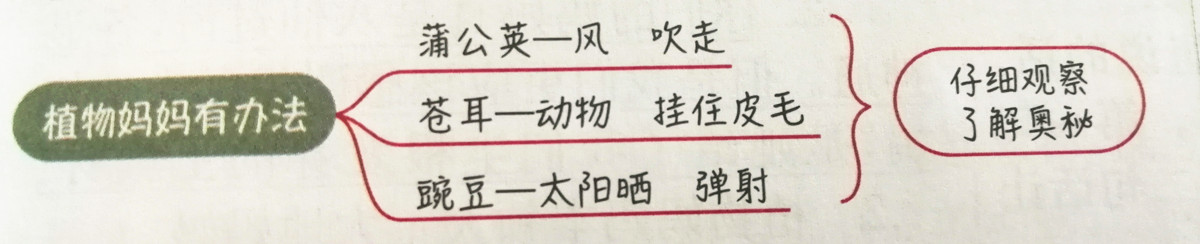 植物妈妈有办法
蒲公英—风 吹走
苍耳—动物 挂住皮毛
豌豆—太阳晒 弹射
仔细观察
了解奥秘